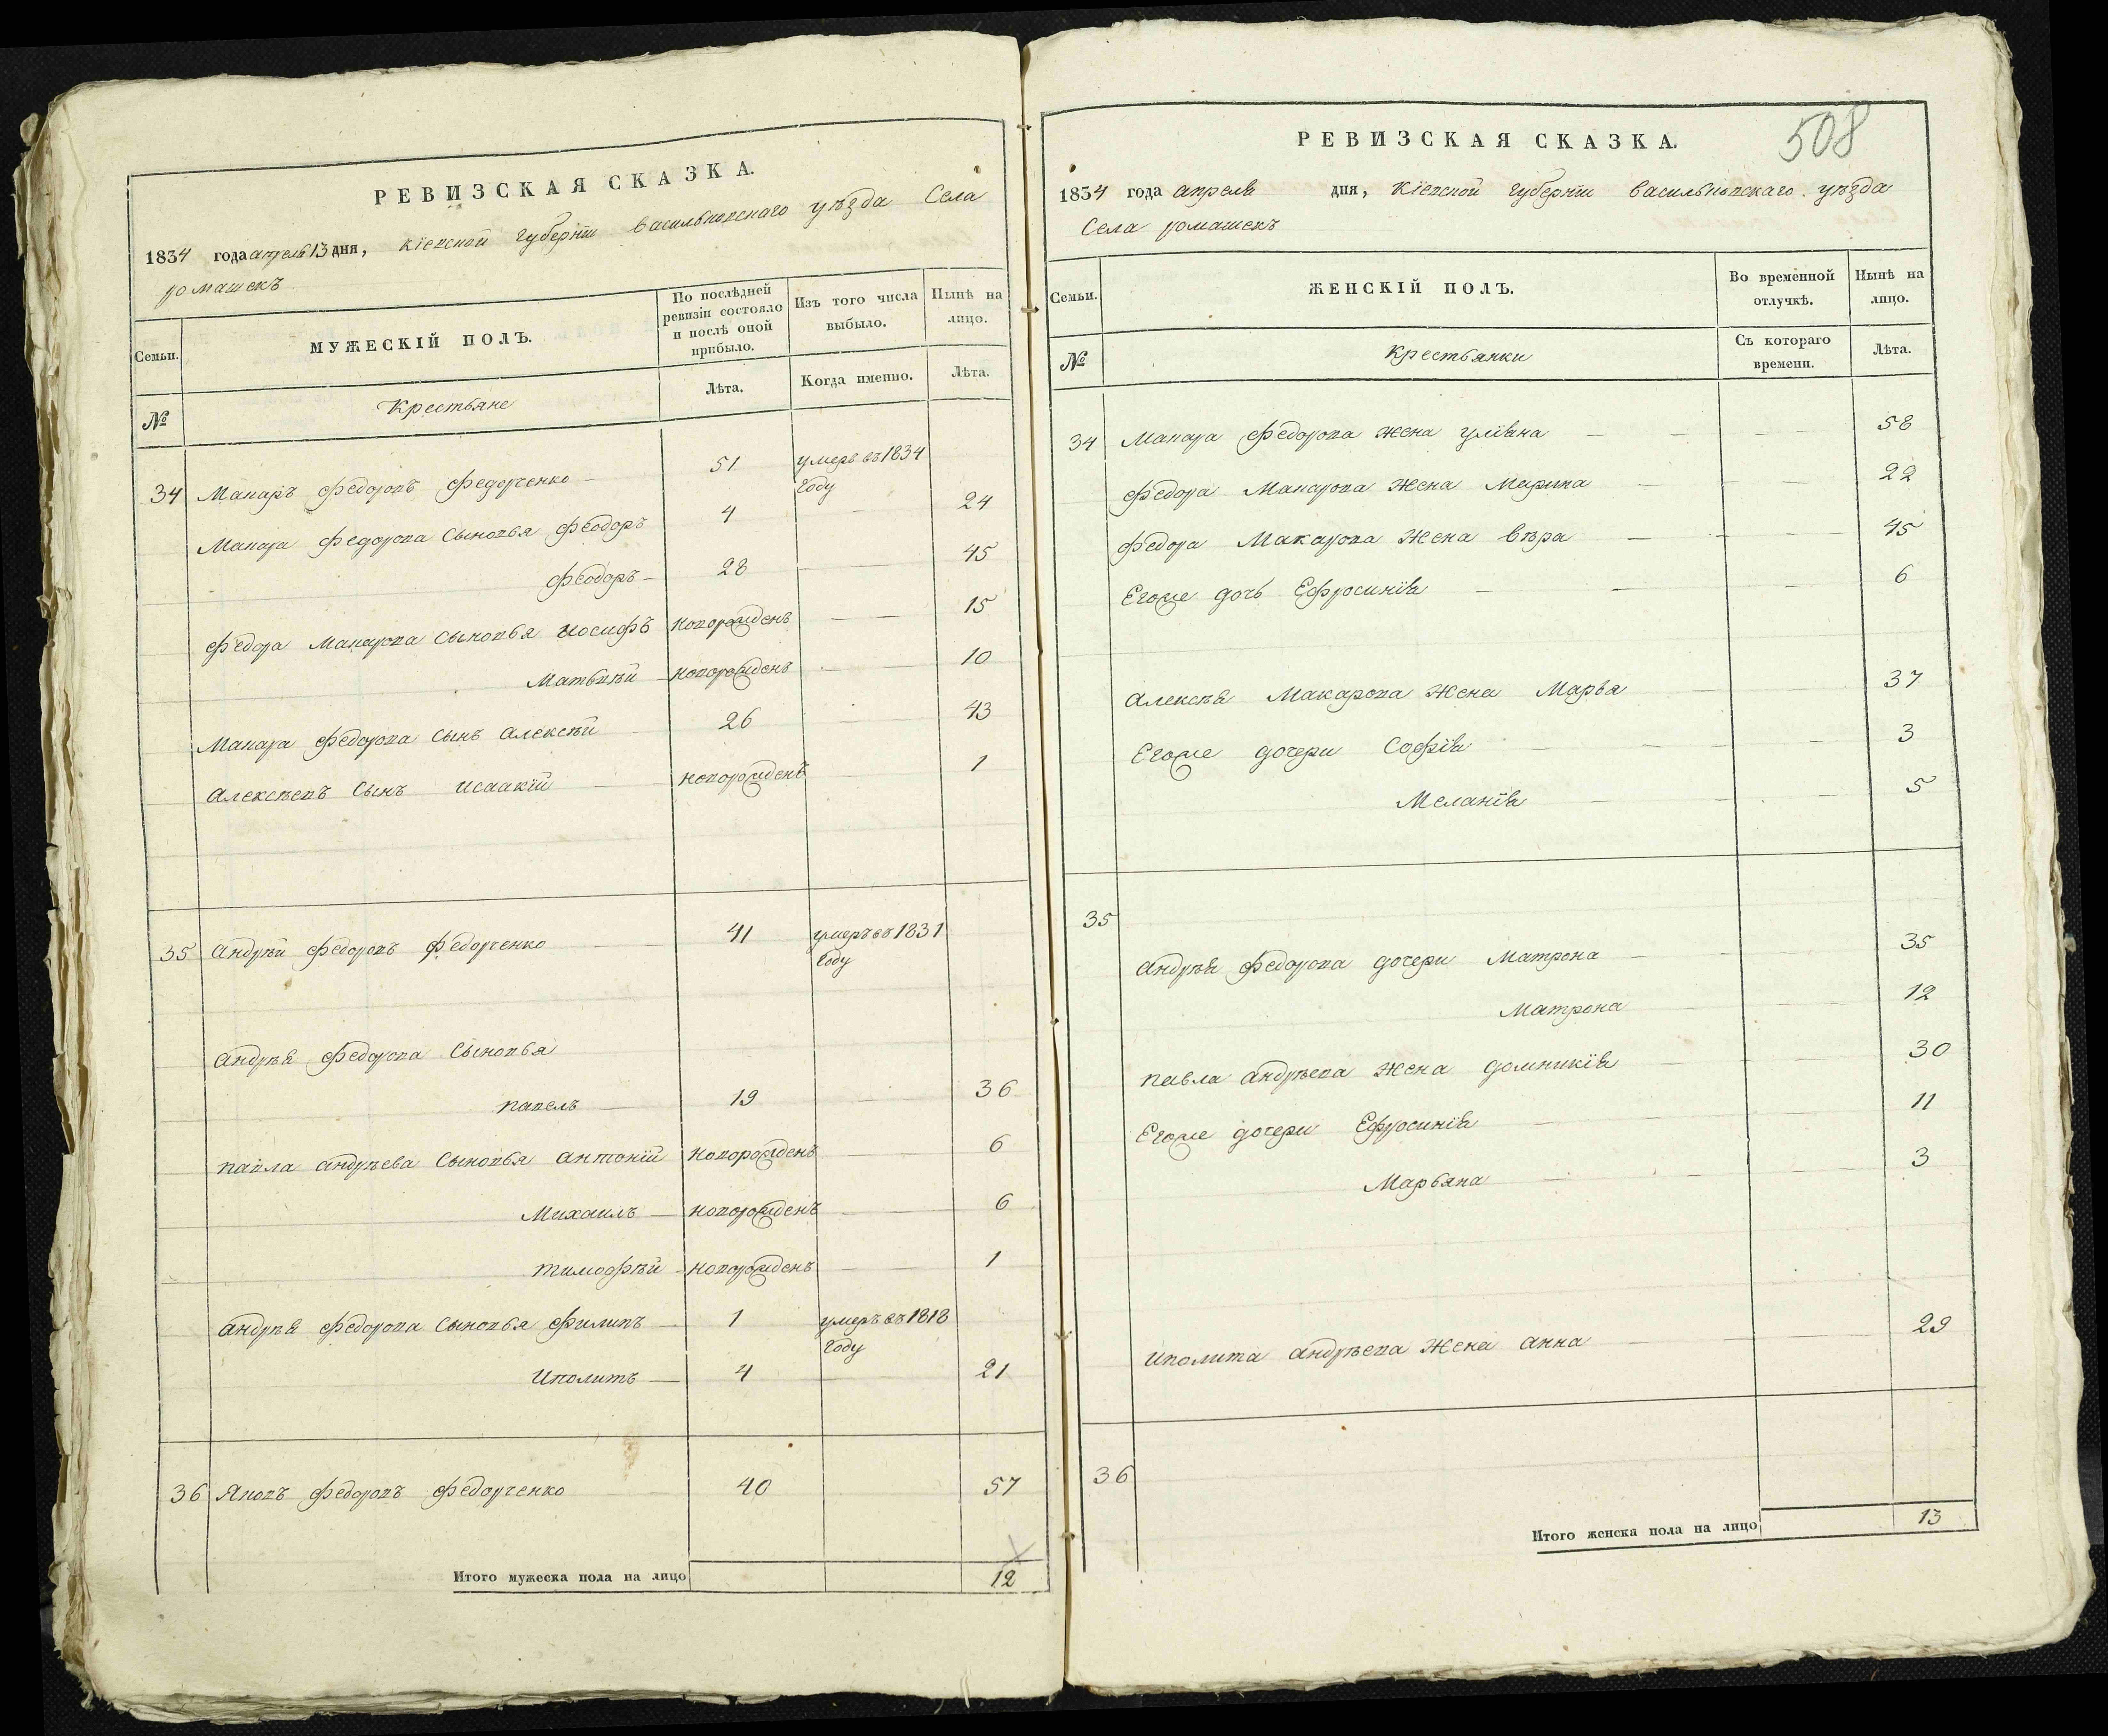 РЕВИЗСКАЯ СКАЗКА.
1834 года апреля 13 дня, Кіевской губерніи васильковскаго уѣзда Села
ромашекъ
Семьи. МУЖЕСКІЙ ПОЛЪ. По послѣдней ревизіи состояло и послѣ оной прибыло. Изъ того числа выбыло. Нынѣ на лицо.
№ Крестьяне Лѣта. Когда именно. Лѣта.
34 Макаръ Федоровъ Федорченко 51 умеръ въ 1834
году
Макара Федорова Сыновья Феодоръ 4 — 24
Феодоръ 28 — 45
Федора Макарова Сыновья Иосифъ новорожденъ — 15
Матьвѣй новорожденъ — 10
Макара Федорова Сынъ Алексѣй 26 — 43
Алексѣевъ Сынъ Исаакій новорожденъ — 1
35 Андрѣй Федоровъ Федорченко 41 умеръ въ 1831
году
Андрѣя Федорова Сыновья
Павелъ 19 — 36
Павла Андрѣева Сыновья Антоній новорожденъ — 6
Михаилъ новорожденъ — 6
Тимофѣй новорожденъ — 1
Андрѣя Федорова Сыновья Филипъ 1 умеръ въ 1818
году
Иполитъ 4 — 21
36 Яковъ Федоровъ Федорченко 40 57
Итого мужеска пола на лицо 12
508
РЕВИЗСКАЯ СКАЗКА.
1834 года апреля дня, Кіевской губерніи васильковскаго уѣзда
Села ромашекъ
Семьи. ЖЕНСКІЙ ПОЛЪ. Во временной отлучкѣ. Нынѣ на лицо.
№ Крестьянки Съ котораго времени. Лѣта.
34 Макара Федорова жена Уліяна — 58
Федора Макарова жена Марина — 22
Федора Макарова жена Вѣра — 45
Егоже дочь Ефросинія — 6
Алексѣя Макарова жена Марья 37
Егоже дочери Софія — 3
Меланія — 5
35
Андрѣя Федорова дочери Матрона — 35
Матрона — 12
Павла Андрѣева жена Домникія — 30
Егоже дочери Ефросинія — 11
Марьяна — 3
Иполита Андрѣева жена Анна — 29
36
Итого женска пола на лицо 13